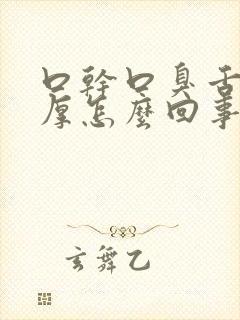 口幹口臭舌
厚怎麼回事
玄舞乙